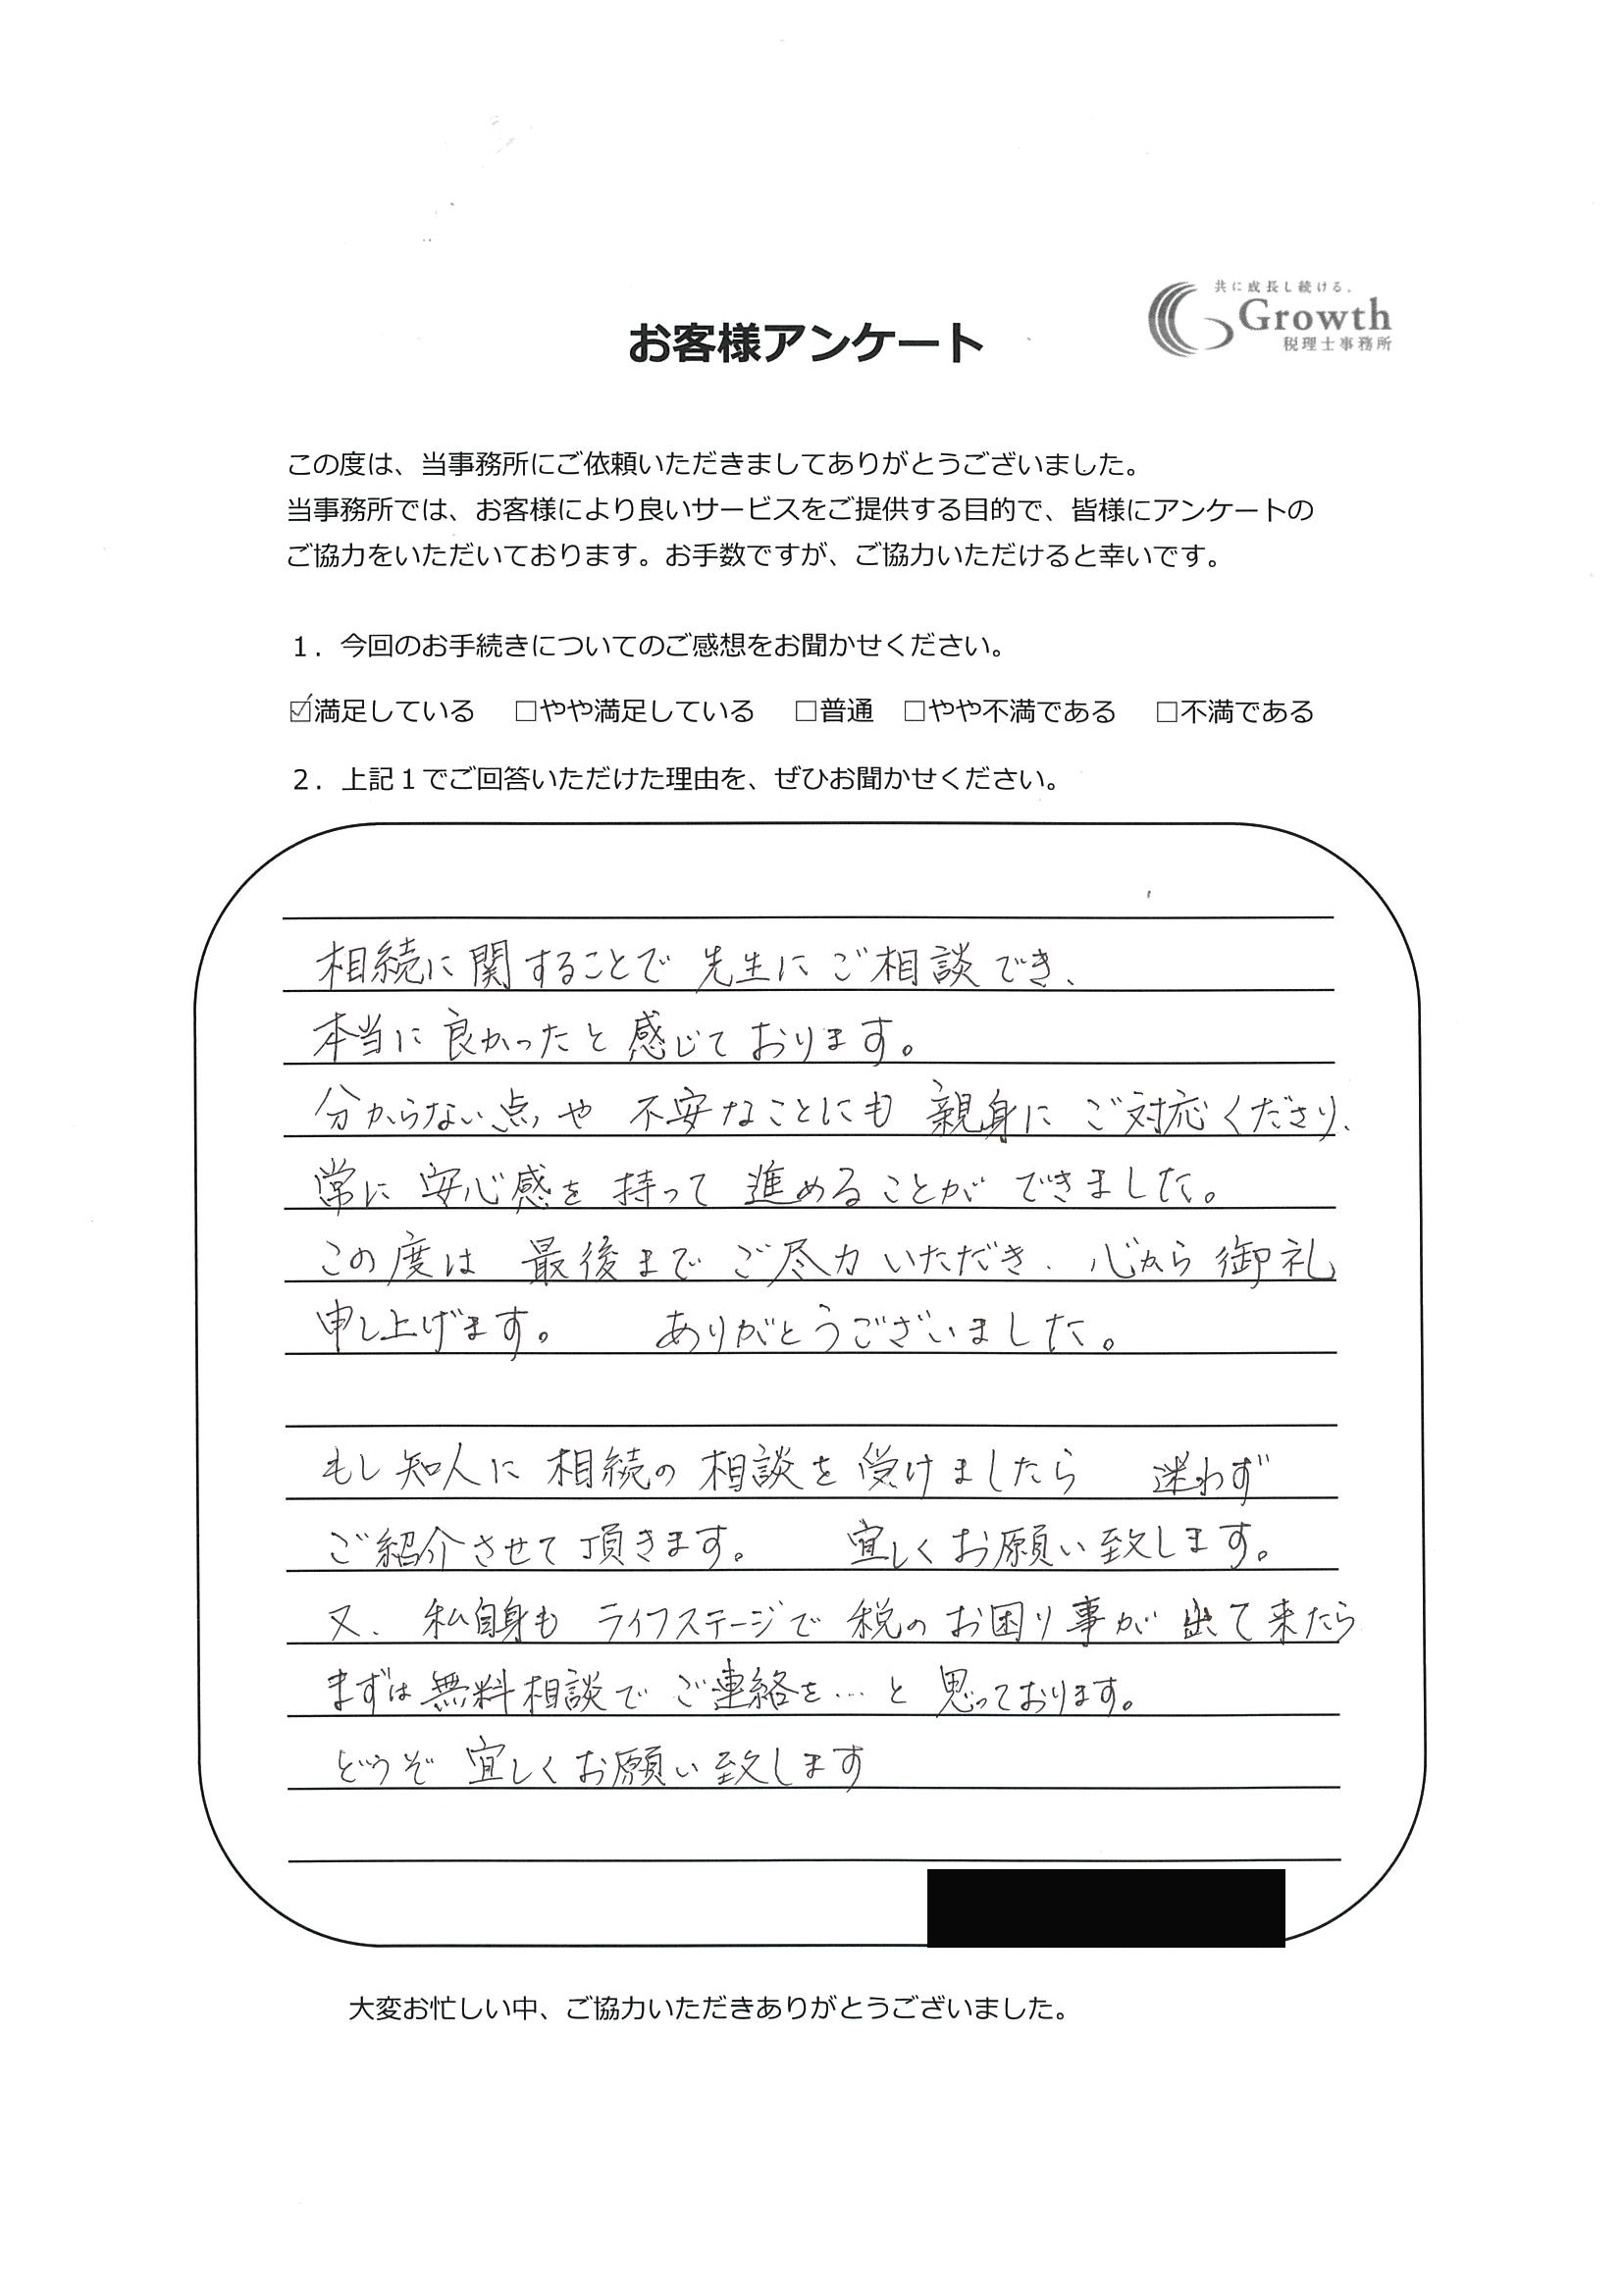 共に成長し続ける。
Growth
税理士事務所
お客様アンケート
この度は、当事務所にご依頼いただきましてありがとうございました。
当事務所では、お客様により良いサービスをご提供する目的で、皆様にアンケートの
ご協力をいただいております。お手数ですが、ご協力いただけると幸いです。
１．今回のお手続きについてのご感想をお聞かせください。
☑満足している □やや満足している □普通 □やや不満である □不満である
２．上記１でご回答いただけた理由を、ぜひお聞かせください。
相続に関することで 先生に ご相談でき、
本当に良かったと感じております。
分からない点や 不安なことにも 親身に ご対応くださり、
常に 安心感を 持って 進めることが できました。
この度は 最後まで ご尽力いただき、心から御礼
申し上げます。 ありがとうございました。
もし知人に 相続の 相談を 受けましたら 迷わず
ご紹介させて頂きます。 宜しくお願い致します。
又、私自身も ライフステージで 税の お困り事が 出て来たら
まずは無料相談で ご連絡を…と 思っております。
どうぞ 宜しくお願い致します
大変お忙しい中、ご協力いただきありがとうございました。